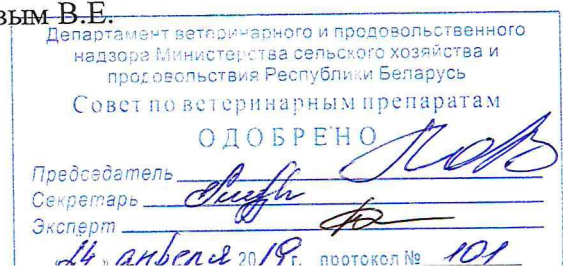 вым В.Е.
Департамент ветеринарного и продовольственного
надзора Министерства сельского хозяйства и
продовольствия Республики Беларусь
Совет по ветеринарным препаратам
ОДОБРЕНО
Председатель
Секретарь
Эксперт
«24» апреля 2019г. протокол № 101